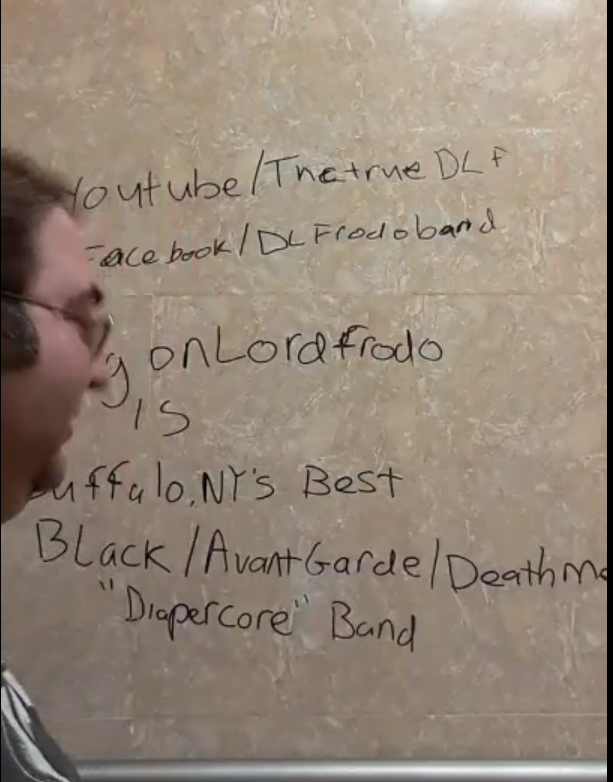 Youtube/ThetrueDLF
Facebook/DLFrodoband
g onLordfrodo
is
uffalo,NY's Best
Black/AvantGarde/Deathme
"Diapercore" Band